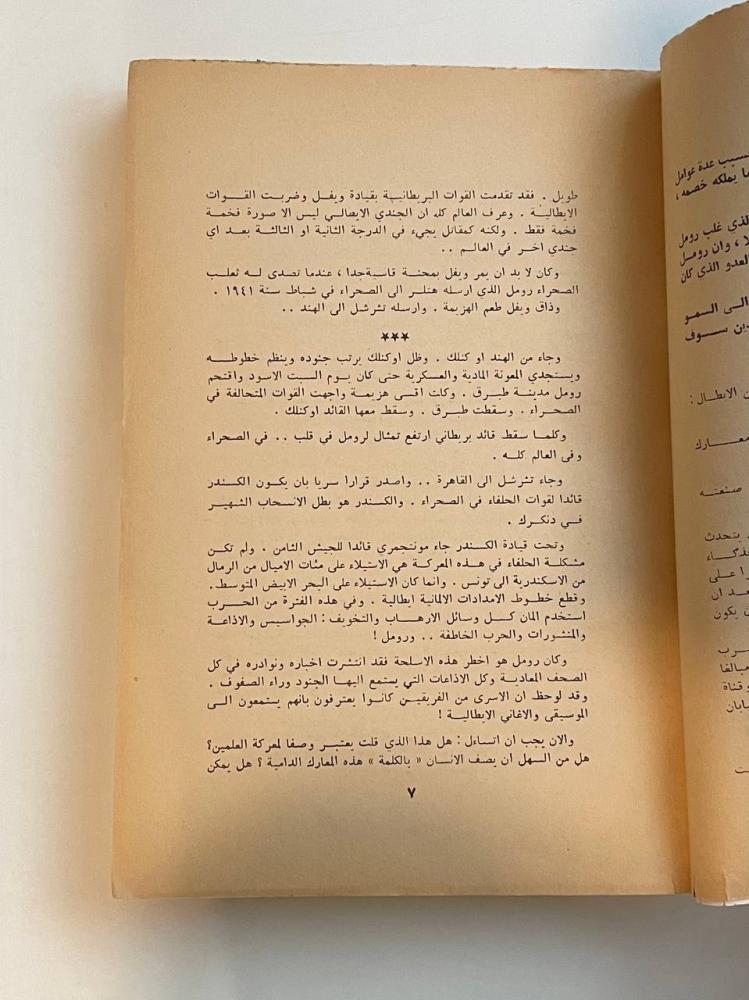 طويل . فقد تقدمت القوات البريطانية بقيادة ويفل وضربت القوات
الايطالية . وعرف العالم كله ان الجندي الايطالي ليس الا صورة فخمة
فخمة فقط . ولكنه كمقاتل يجيء في الدرجة الثانية او الثالثة بعد اي
جندي اخر في العالم ..
وكان لا بد ان يمر ويفل بمحنة قاسية جدا ، عندما تصدى له ثعلب
الصحراء رومل الذي ارسله هتلر الى الصحراء في شباط سنة ١٩٤١ .
وذاق ويفل طعم الهزيمة . وارسله تشرشل الى الهند ..
★★★
وجاء من الهند او كنلك . وظل اوكنلك يرتب جنوده وينظم خطوطه
ويستجدي المعونة المادية والعسكرية حتى كان يوم السبت الاسود واقتحم
رومل مدينة طبرق . وكات اقسى هزيمة واجهت القوات المتحالفة في
الصحراء . وسقطت طبرق . وسقط معها القائد اوكنلك .
وكلما سقط قائد بريطاني ارتفع تمثال لرومل في قلب .. في الصحراء
وفى العالم كله .
وجاء تشرشل الى القاهرة .. واصدر قرارا سريا بان يكون الكسندر
قائدا لقوات الحلفاء في الصحراء . والكسندر هو بطل الانسحاب الشهير
في دنكرك .
وتحت قيادة الكسندر جاء مونتجمري قائدا للجيش الثامن . ولم تكن
مشكلة الحلفاء في هذه المعركة هي الاستيلاء على مئات الاميال من الرمال
من الاسكندرية الى تونس . وانما كان الاستيلاء على البحر الابيض المتوسط.
وقطع خطوط الامدادات الالمانية ايطالية . وفي هذه الفترة من الحرب
استخدم المان كل وسائل الارهاب والتخويف : الجواسيس والاذاعة
والمنشورات والحرب الخاطفة .. ورومل !
وكان رومل هو اخطر هذه الاسلحة فقد انتشرت اخباره ونوادره في كل
الصحف المعادية وكل الاذاعات التي يستمع اليها الجنود وراء الصفوف .
وقد لوحظ ان الاسرى من الفريقين كانوا يعترفون بانهم يستمعون الى
الموسيقى والاغاني الايطالية !
والان يجب ان اتساءل : هل هذا الذي قلت يعتبر وصفا لمعركة العلمين؟
هل من السهل ان يصف الانسان « بالكلمة » هذه المعارك الدامية ؟ هل يمكن
٧
بسبب عدة عوامل
ما يملكه خصمه ،
الذي غلب رومل
لا ، وان رومل
العدو الذي كان
الى السمو
سوف
الابطال :
معارك
صنعته
يتحدث
على
ان
يكون